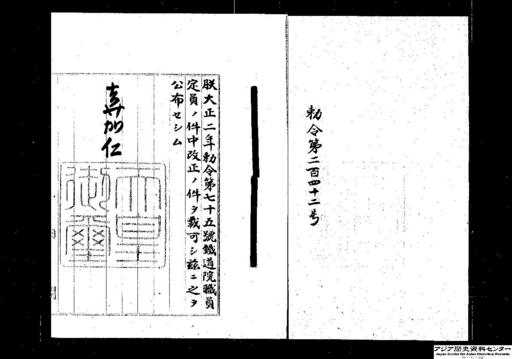 勅令第二百四十二号
朕大正二年勅令第七十五號鐵道院職員
定員ノ件中改正ノ件ヲ裁可シ茲ニ之ヲ
公布セシム
嘉仁
天皇
御璽
アジア歴史資料センター
Japan Center for Asian Historical Records